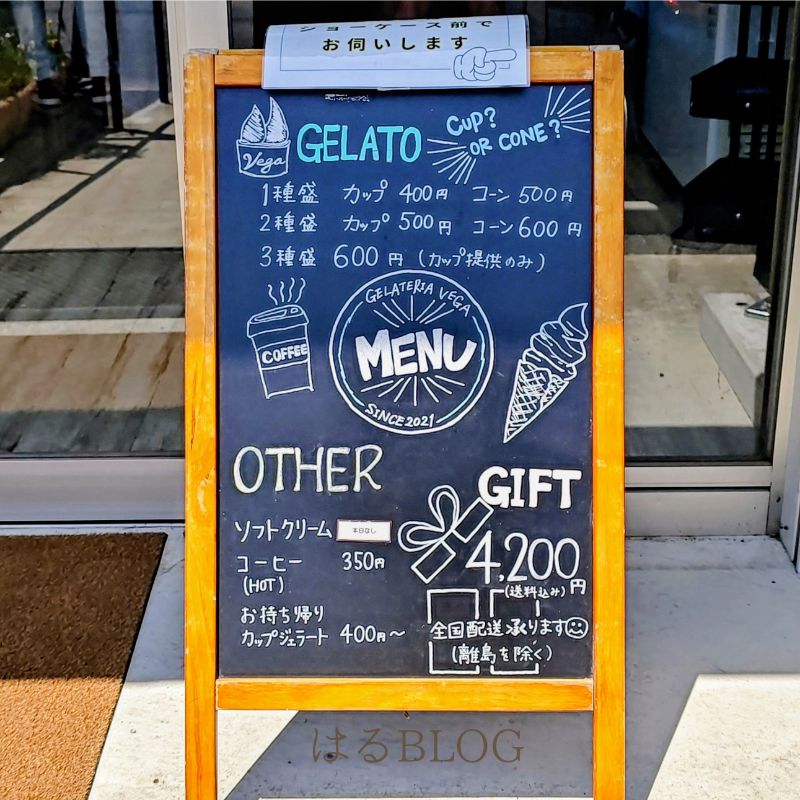 ショーケース前で
お伺いします
Vega
GELATO
CUP?
OR CONE?
1種盛 カップ 400円 コーン 500円
2種盛 カップ 500円 コーン 600円
3種盛 600円 (カップ提供のみ)
GELATERIA VEGA
MENU
SINCE 2021
COFFEE
OTHER
ソフトクリーム 本日なし
コーヒー 350円
(HOT)
お持ち帰り
カップジェラート 400円～
GIFT
4,200円
(送料込み)
全国配送承ります
(離島を除く)
はるBLOG